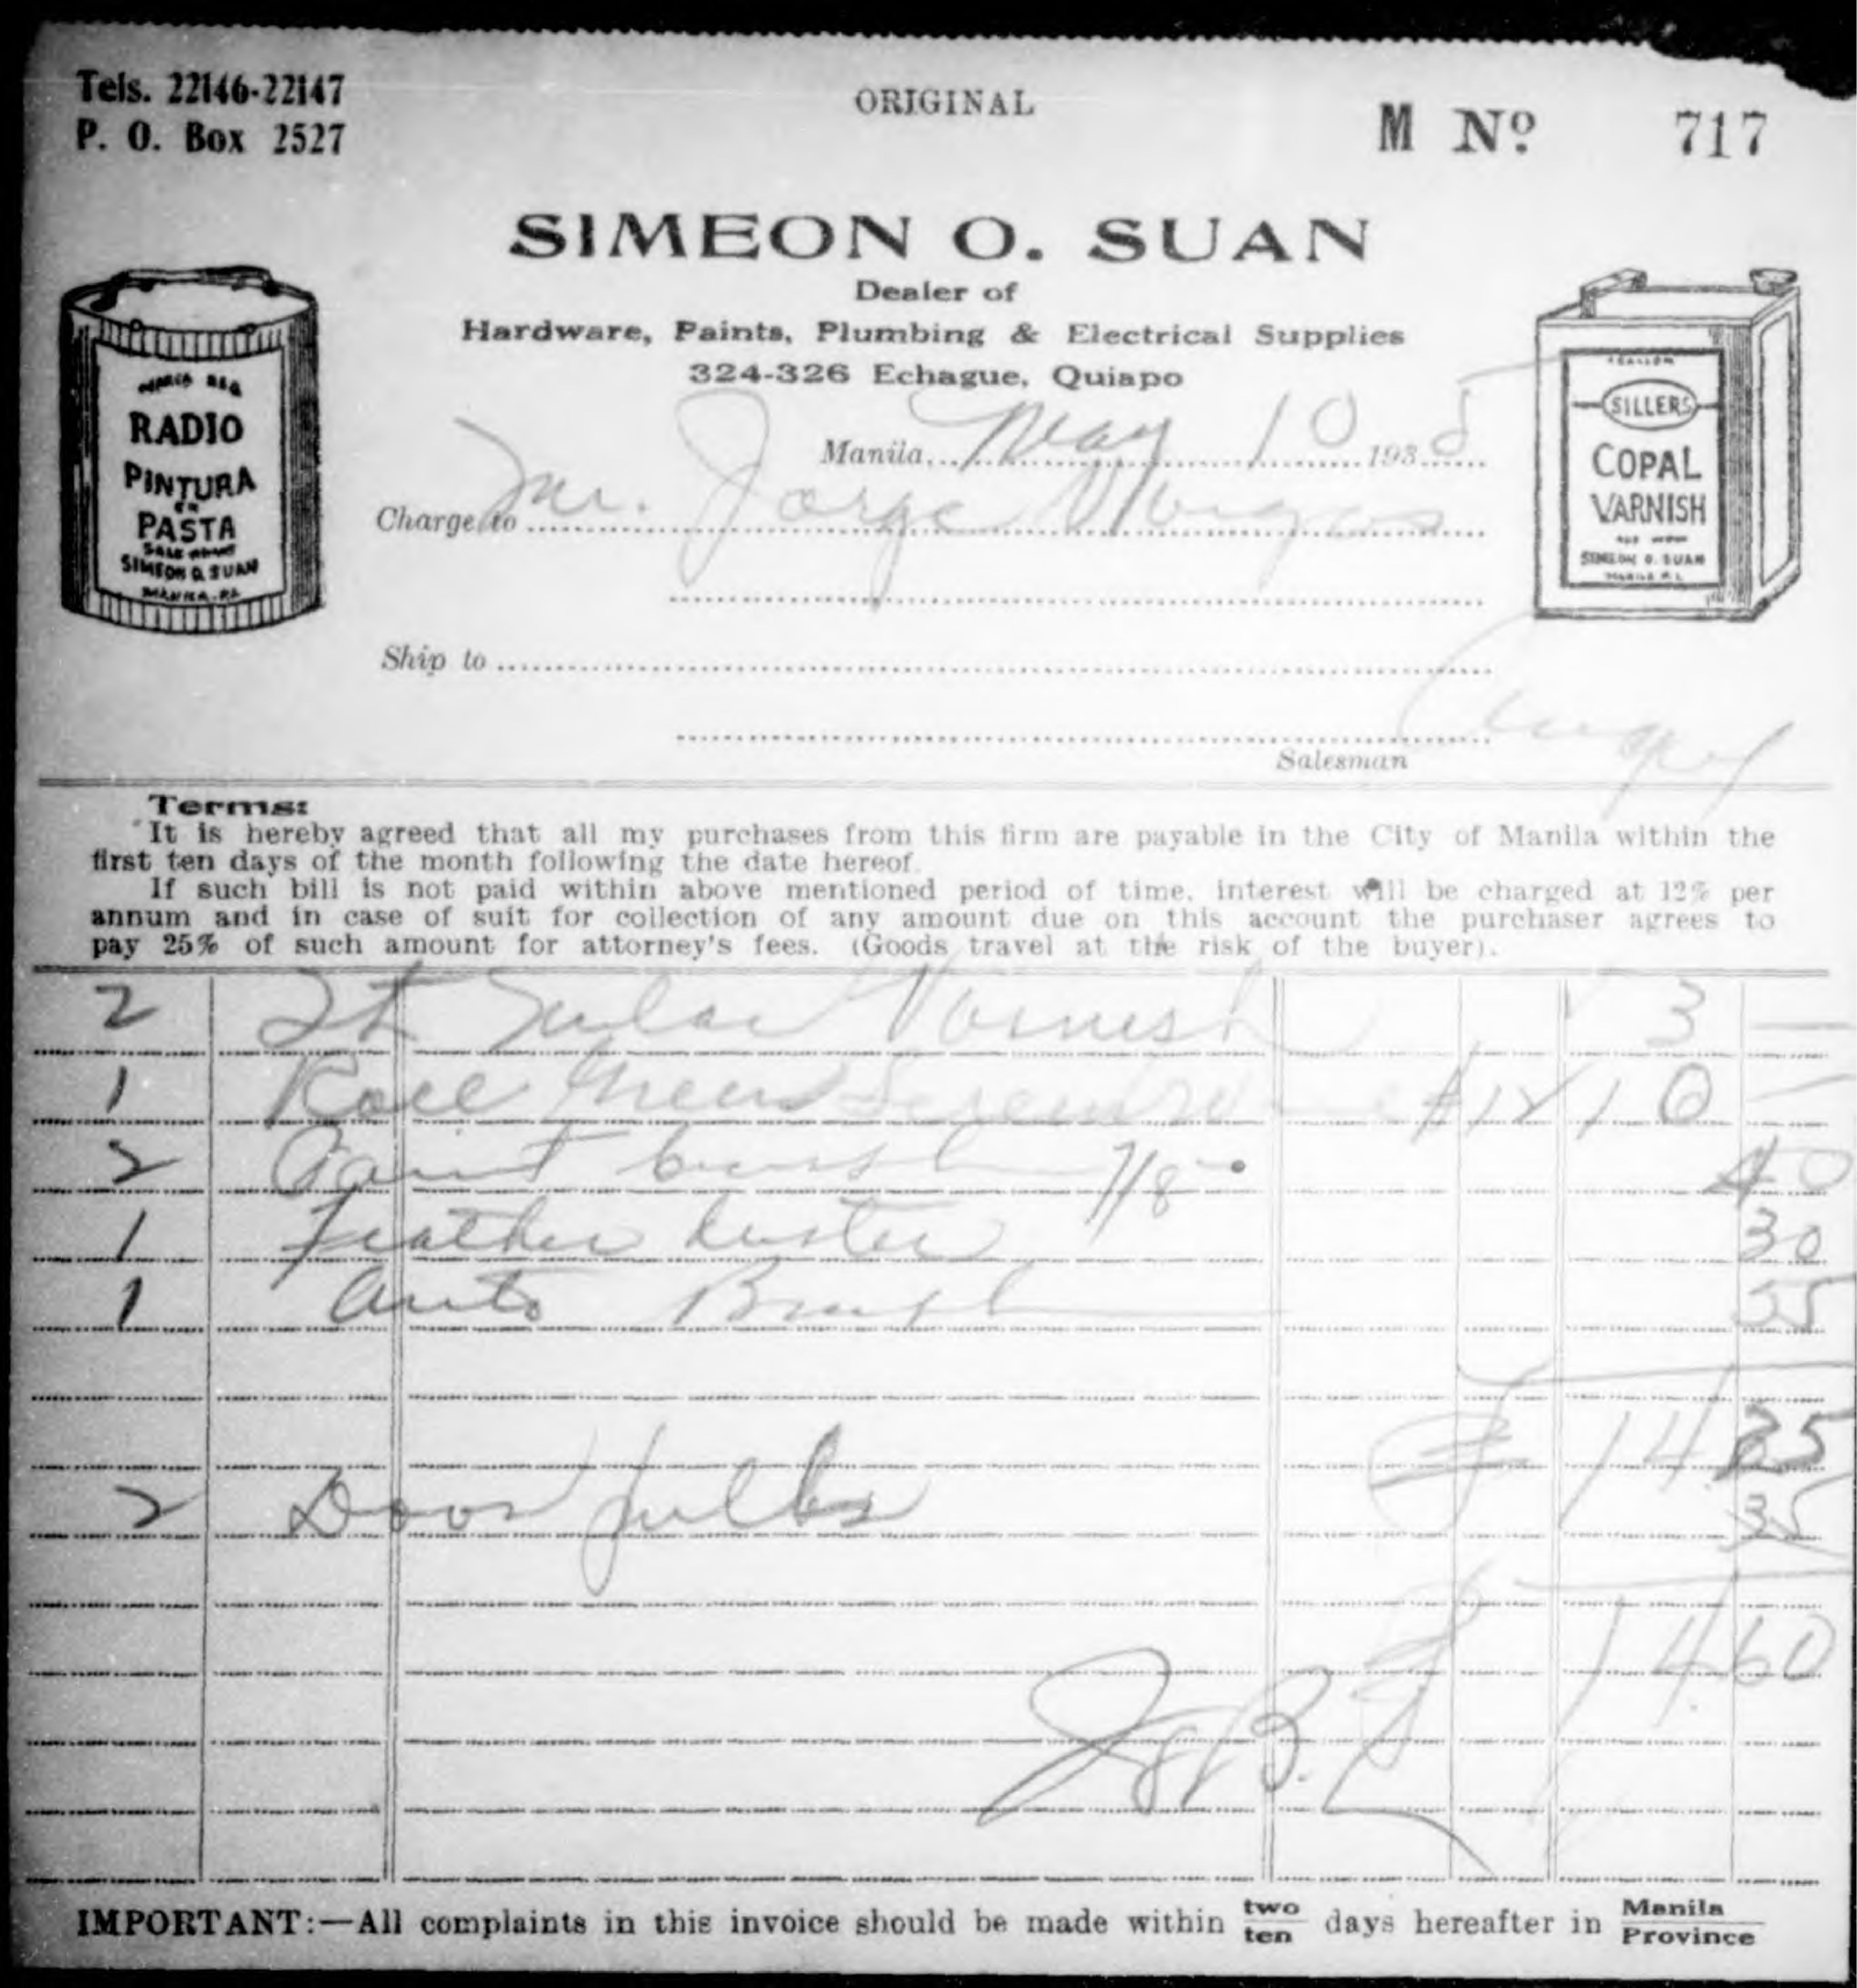 Tels. 22146-22147
P. O. Box 2527
ORIGINAL
M Nº 717
SIMEON O. SUAN
Dealer of
Hardware, Paints, Plumbing & Electrical Supplies
324-326 Echague, Quiapo
RADIO
PINTURA
EN
PASTA
SIMEON O. SUAN
MANILA, P.I.
SILLERS
COPAL
VARNISH
SIMEON O. SUAN
MANILA P.I.
Manila, May 10 1935
Charge to Mr. Jorge Vargas
Ship to
Salesman
Terms:
It is hereby agreed that all my purchases from this firm are payable in the City of Manila within the
first ten days of the month following the date hereof.
If such bill is not paid within above mentioned period of time, interest will be charged at 12% per
annum and in case of suit for collection of any amount due on this account the purchaser agrees to
pay 25% of such amount for attorney's fees. (Goods travel at the risk of the buyer).
2 Varnish 3 —
1 Roll Green 10 —
2 Paint brush 7/8" 40
1 Feather duster 30
1 Auto Brush 55
₱ 14.25
2 Door pulls 35
₱ 14.60
IMPORTANT:—All complaints in this invoice should be made within two/ten days hereafter in Manila/Province